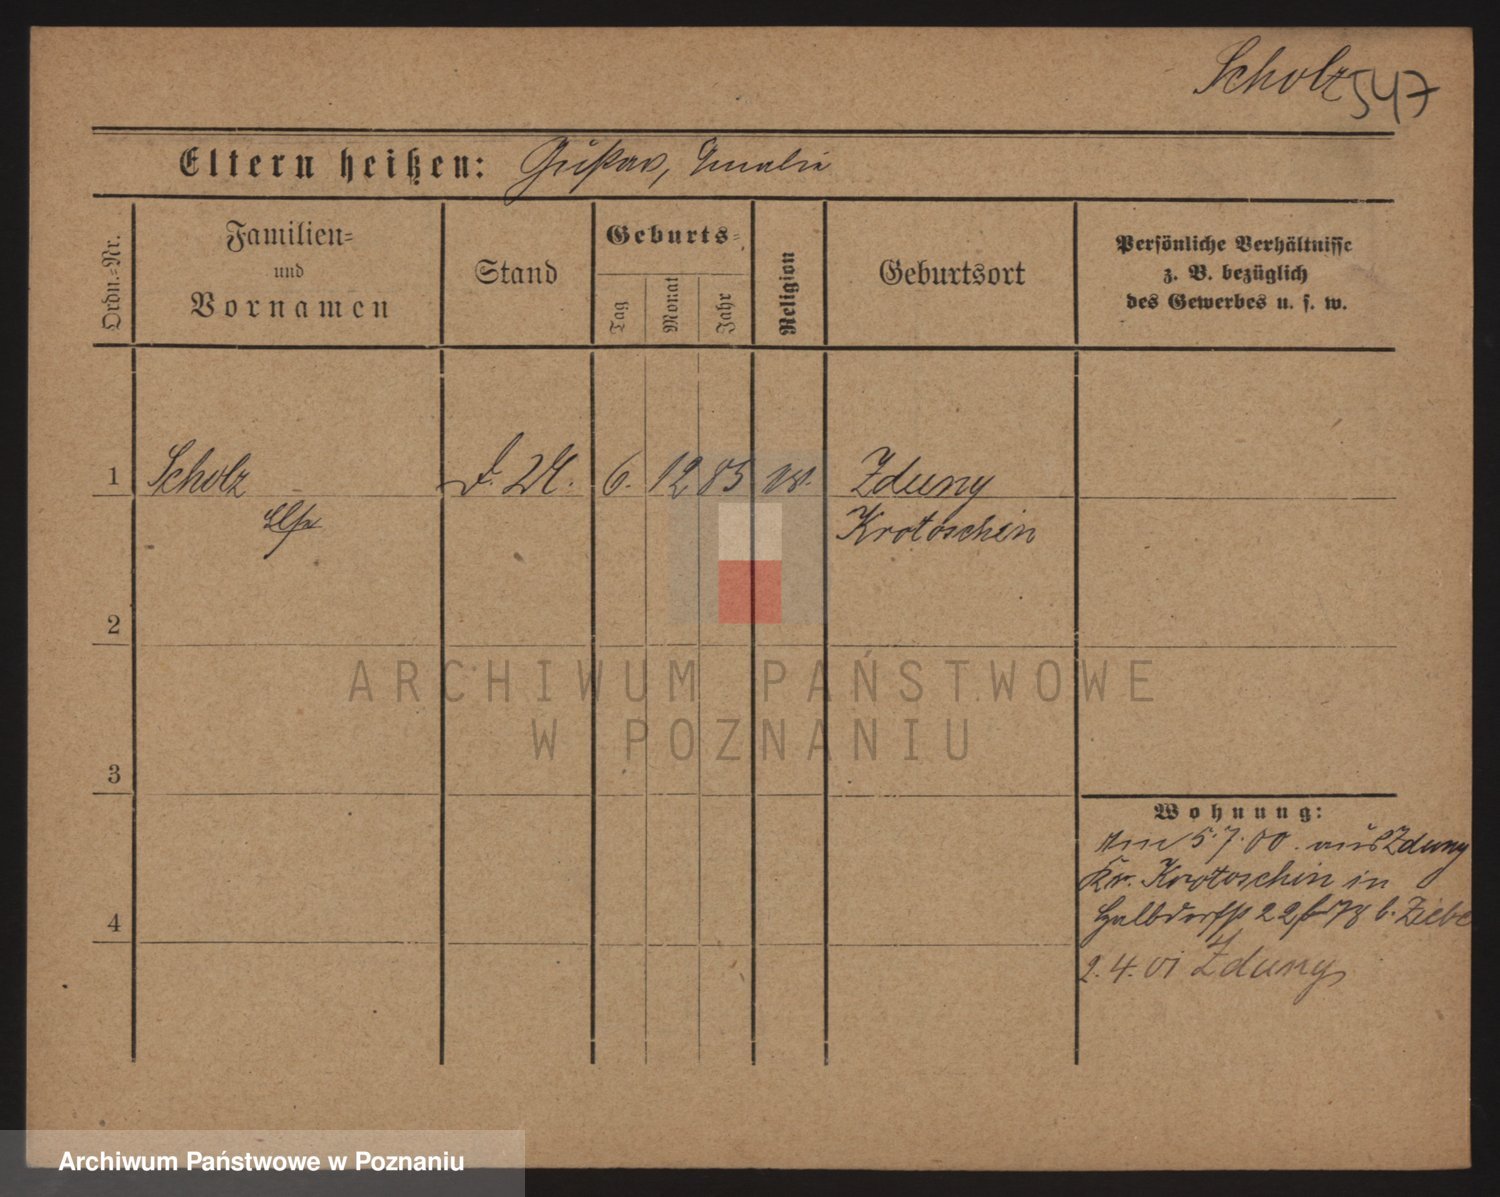 Scholz 547
Eltern heißen: Gustav, Amalie
Ordn.-Nr.
Familien-
und
Vornamen
Stand
Geburts-
Tag
Monat
Jahr
Religion
Geburtsort
Persönliche Verhältnisse
z. B. bezüglich
des Gewerbes u. s. w.
1 Scholz 6. 12 85 Zduny
Else Krotoschin
2
3
4
Wohnung:
Am 5.7.00. aus Zduny
Kr. Krotoschin in
Halbdorfst 22 b. Ziebe
2.4.01 Zduny
ARCHIWUM PAŃSTWOWE
W POZNANIU
Archiwum Państwowe w Poznaniu